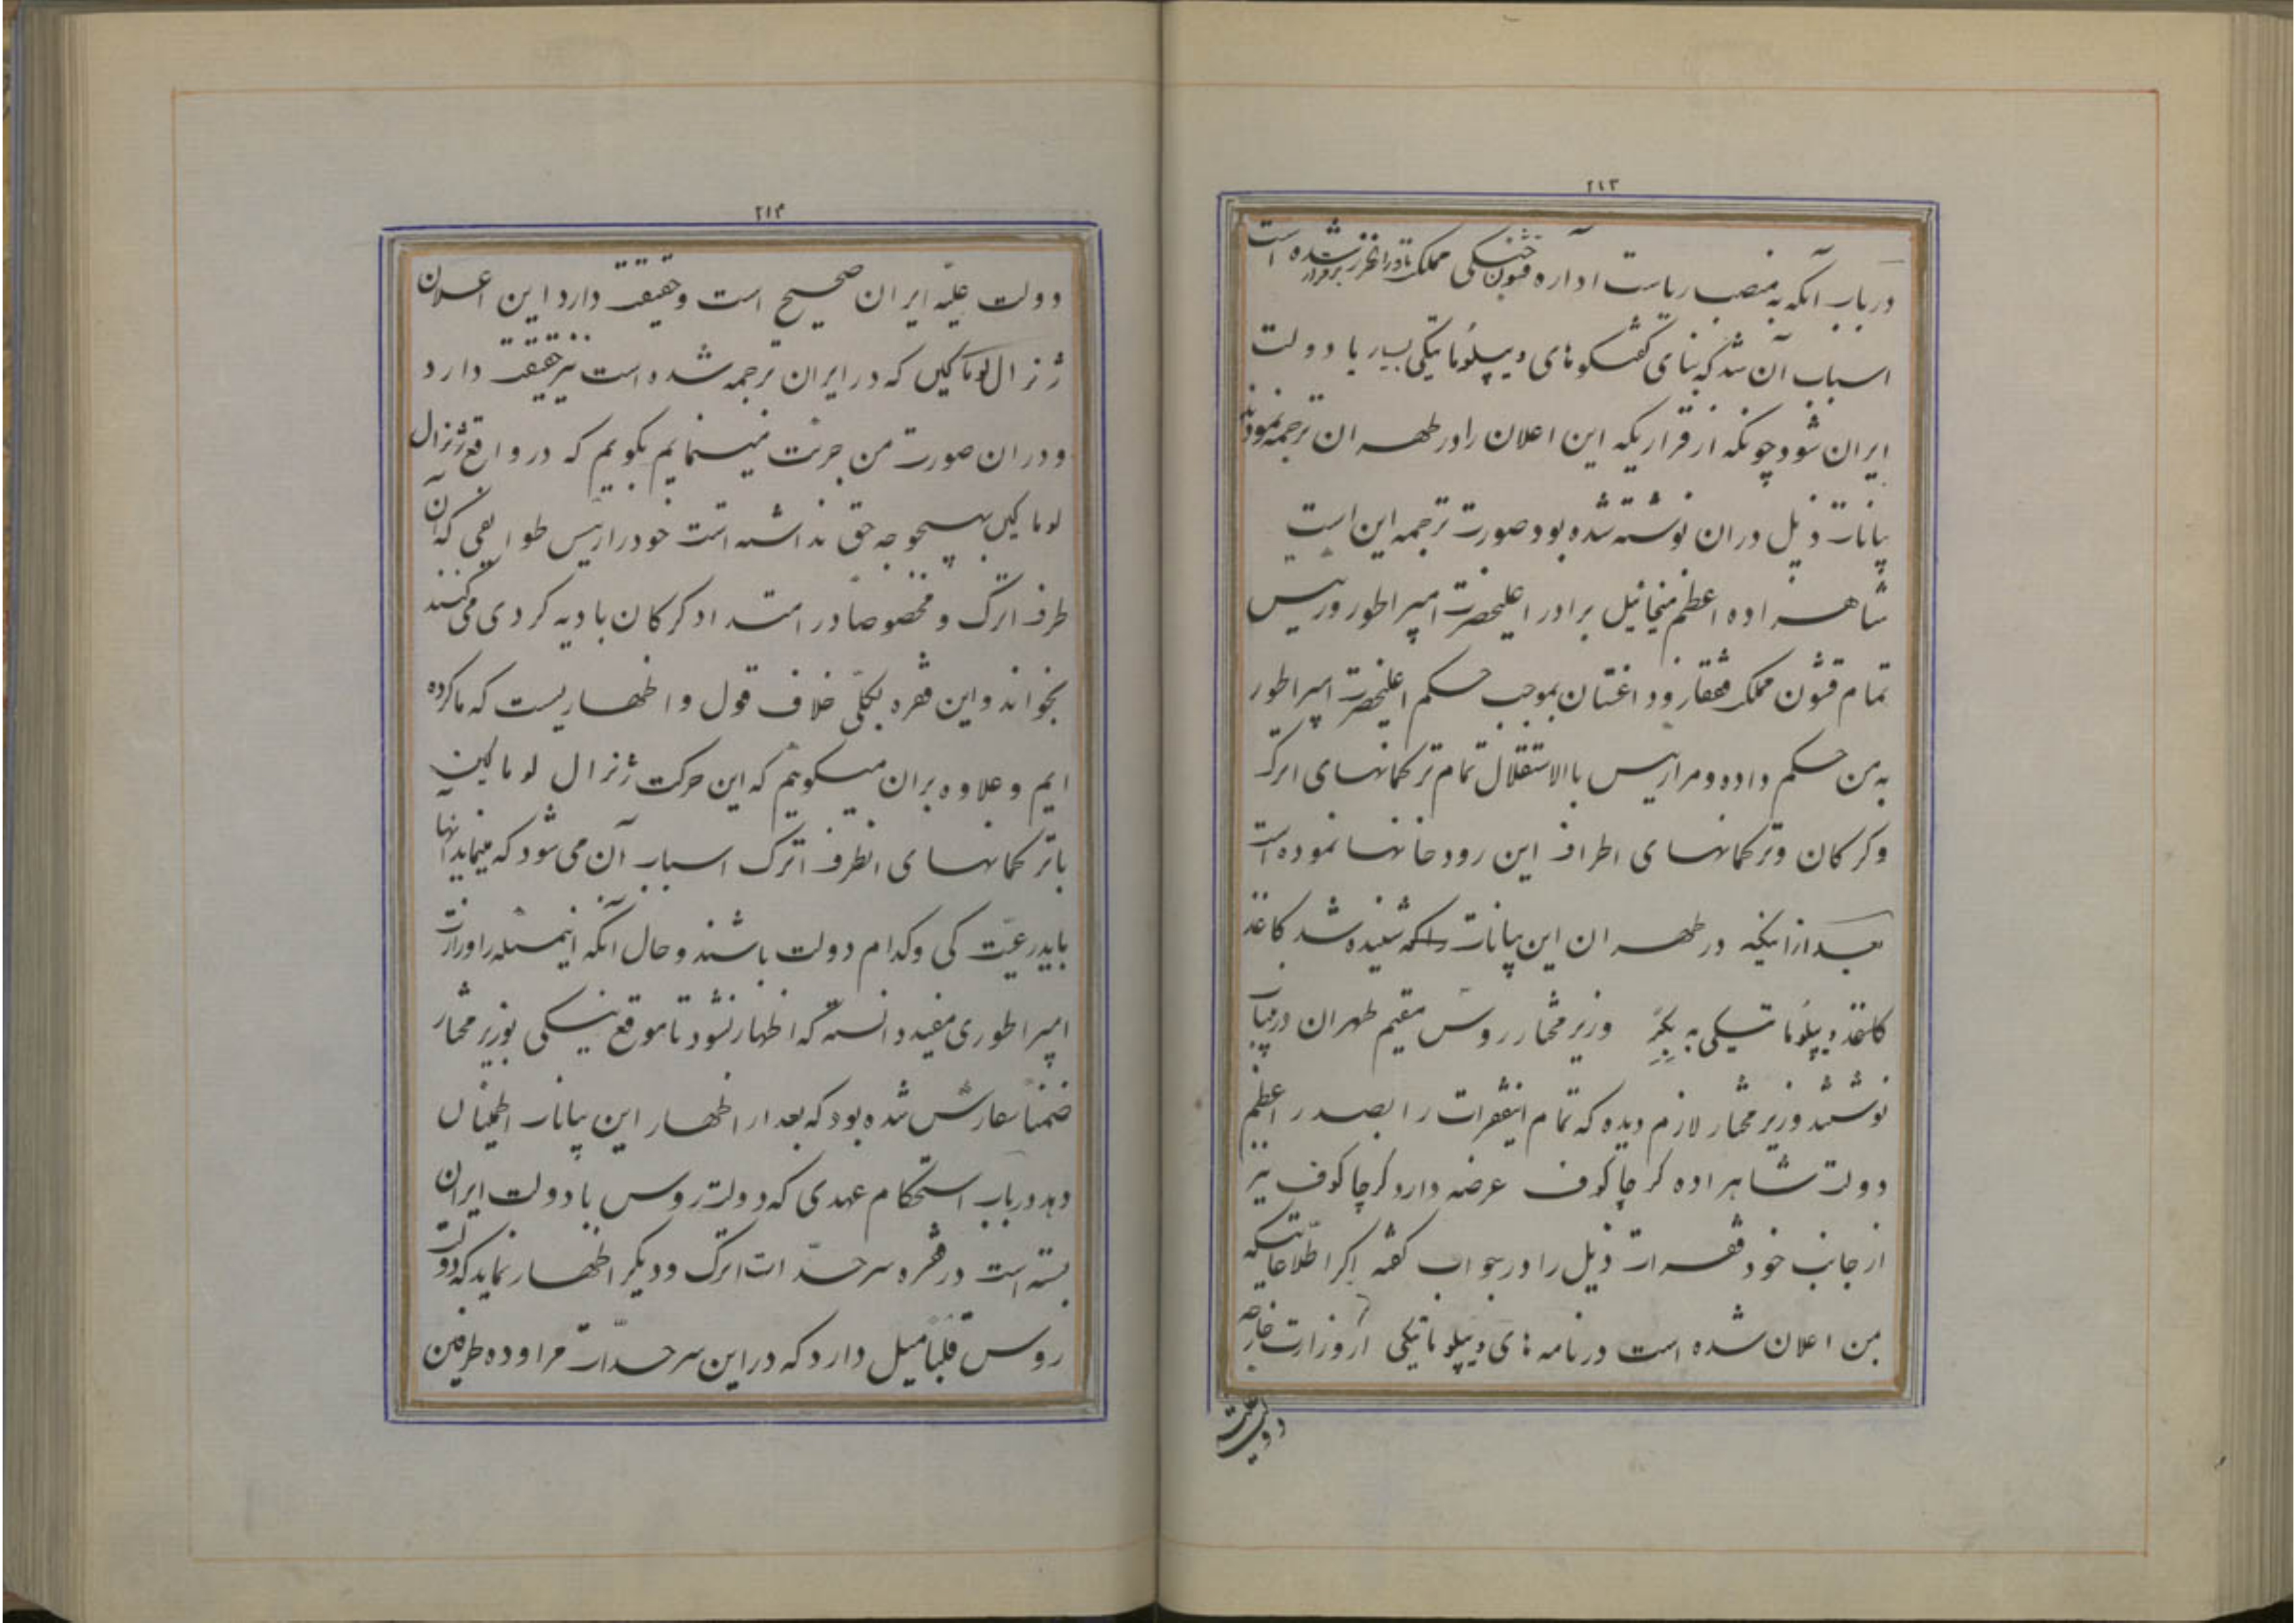 ۲۱۳
درباب آنکه به منصب ریاست اداره قشون خشکی مملکت ماوراء خزر برقرار شده است
اسباب آن شد که بنای گفتگوهای دیپلوماتیکی بسیار با دولت
ایران شود چونکه از قراریکه این اعلان را در طهران ترجمه نمودند
بیانات ذیل دران نوشته شده بود صورت ترجمه این است
شاهزاده اعظم میخائیل برادر اعلیحضرت امپراطور و رئیس
تمام قشون مملکت قفقاز و داغستان بموجب حکم اعلیحضرت امپراطور
به من حکم داده و مرا رئیس بالاستقلال تمام ترکمانهای اترک
و کرکان و ترکمانهای اطراف این رودخانها نموده است
بعد از انکه در طهران این بیانات شنیده شد کاغذ
کاغذ دیپلوماتیکی به بگر وزیر مختار روس مقیم طهران درین باب
نوشتند وزیر مختار لازم دیده که تمام اینفقرات را بصدر اعظم
دولت شاهزاده کرچاکوف عرضه دارد کرچاکوف نیز
از جانب خود فقرات ذیل را در جواب گفته اگر اطلاعاتیکه
بمن اعلان شده است در نامه های دیپلوماتیکی از وزارت خارجه
دولت علیه
۲۱۴
دولت علیّه ایران صحیح است و حقیقت دارد این اعلان
ژنرال لوماکین که در ایران ترجمه شده است نیز حقیقت دارد
و دران صورت من جرئت مینمایم بگویم که در واقع ژنرال
لوماکین بهیچوجه حق نداشته است خود را رئیس طوایفی که آن
طرف اترک و مخصوصاً در امتداد کرکان بادیه کردی می کنند
بخواند و این فقره بکلّی خلاف قول و اظهاریست که ما کرده
ایم و علاوه بران میگویم که این حرکت ژنرال لوماکین
با ترکمانهای انطرف اترک اسباب آن می شود که اینها
باید رعیّت کی و کدام دولت باشند و حال آنکه اینمسئله را وزارت
امپراطوری مفید دانسته که اظهار نشود تا موقع نیکی بوزیر مختار
ضمناً سفارش شده بود که بعد از اظهار این بیانات اطمینان
دهد درباب استحکام عهدی که دولت روس با دولت ایران
بسته است در فقره سرحدّات اترک و دیگر اظهار نماید که دولت
روس قلباً میل دارد که در این سرحدّات مراوده طرفین